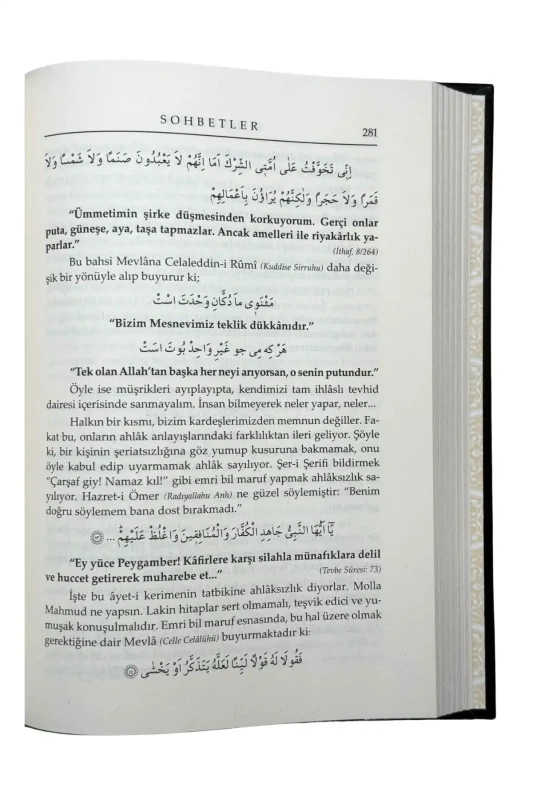 SOHBETLER
281
اِنِّي تَخَوَّفْتُ عَلٰى اُمَّتِي الشِّرْكَ اَمَا اِنَّهُمْ لَا يَعْبُدُونَ صَنَمًا وَلَا شَمْسًا وَلَا
قَمَرًا وَلَا حَجَرًا وَلٰكِنَّهُمْ يُرَاؤُنَ بِاَعْمَالِهِمْ
“Ümmetimin şirke düşmesinden korkuyorum. Gerçi onlar
puta, güneşe, aya, taşa tapmazlar. Ancak amelleri ile riyakârlık ya-
parlar.”
(İthaf, 8/264)
Bu bahsi Mevlâna Celaleddin-i Rûmî (Kuddise Sirruhu) daha deği-
şik bir yönüyle alıp buyurur ki;
مَثْنَوِى مَا دُكَّانِ وَحْدَتْ اَسْتْ
“Bizim Mesnevimiz teklik dükkânıdır.”
هَرْ كِه مِى جو غَيْرِ وَاحِدْ بُوتْ اَسَتْ
“Tek olan Allah’tan başka her neyi arıyorsan, o senin putundur.”
Öyle ise müşrikleri ayıplayıpta, kendimizi tam ihlâslı tevhid
dairesi içerisinde sanmayalım. İnsan bilmeyerek neler yapar, neler...
Halkın bir kısmı, bizim kardeşlerimizden memnun değiller. Fa-
kat bu, onların ahlâk anlayışlarındaki farklılıktan ileri geliyor. Şöyle
ki, bir kişinin şeriatsızlığına göz yumup kusuruna bakmamak, onu
öyle kabul edip uyarmamak ahlâk sayılıyor. Şer-i Şerifi bildirmek
“Çarşaf giy! Namaz kıl!” gibi emri bil maruf yapmak ahlâksızlık sa-
yılıyor. Hazret-i Ömer (Radıyallahu Anh) ne güzel söylemiştir: “Benim
doğru söylemem bana dost bırakmadı.”
يَٓا اَيُّهَا النَّبِيُّ جَاهِدِ الْكُفَّارَ وَالْمُنَافِقِينَ وَاغْلُظْ عَلَيْهِمْ ...
“Ey yüce Peygamber! Kâfirlere karşı silahla münafıklara delil
ve huccet getirerek muharebe et...”
(Tevbe Sûresi: 73)
İşte bu âyet-i kerimenin tatbikine ahlâksızlık diyorlar. Molla
Mahmud ne yapsın. Lakin hitaplar sert olmamalı, teşvik edici ve yu-
muşak konuşulmalıdır. Emri bil maruf esnasında, bu hal üzere olmak
gerektiğine dair Mevlâ (Celle Celâlühü) buyurmaktadır ki:
فَقُولَا لَهُ قَوْلًا لَيِّنًا لَعَلَّهُ يَتَذَكَّرُ اَوْ يَخْشٰى